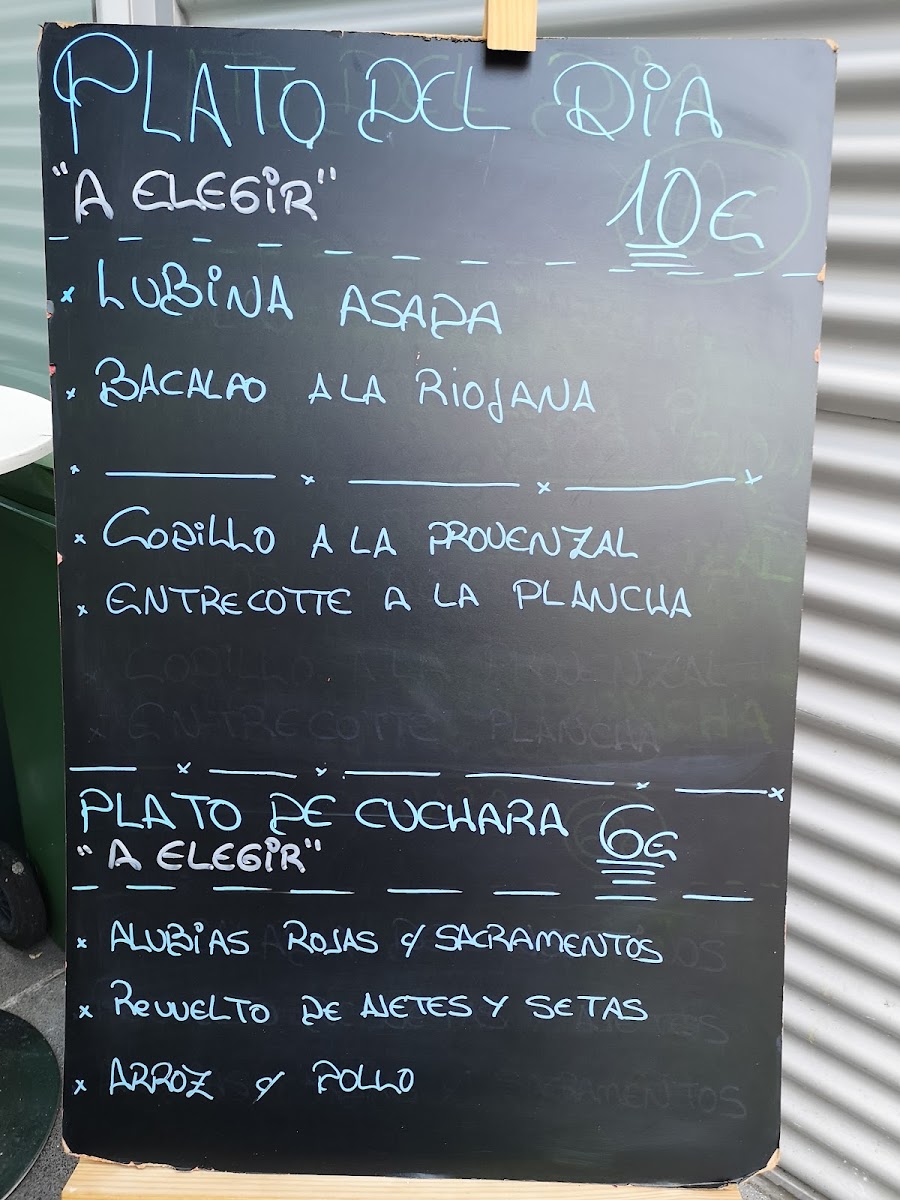 PLATO DEL DiA
"A ELEGiR" 10€
x LUBiNA ASADA
x BACALAO A LA RiOJANA
x CODiLLO A LA PROVENZAL
x ENTRECOTTE A LA PLANCHA
CODILLO A LA PROVENZAL
x ENTRECOTTE PLANCHA
PLATO DE CUCHARA 6€
"A ELEGiR"
x ALUBiAS ROJAS c/ SACRAMENTOS
x REVUELTO DE AJETES Y SETAS
x ARROZ c/ POLLO